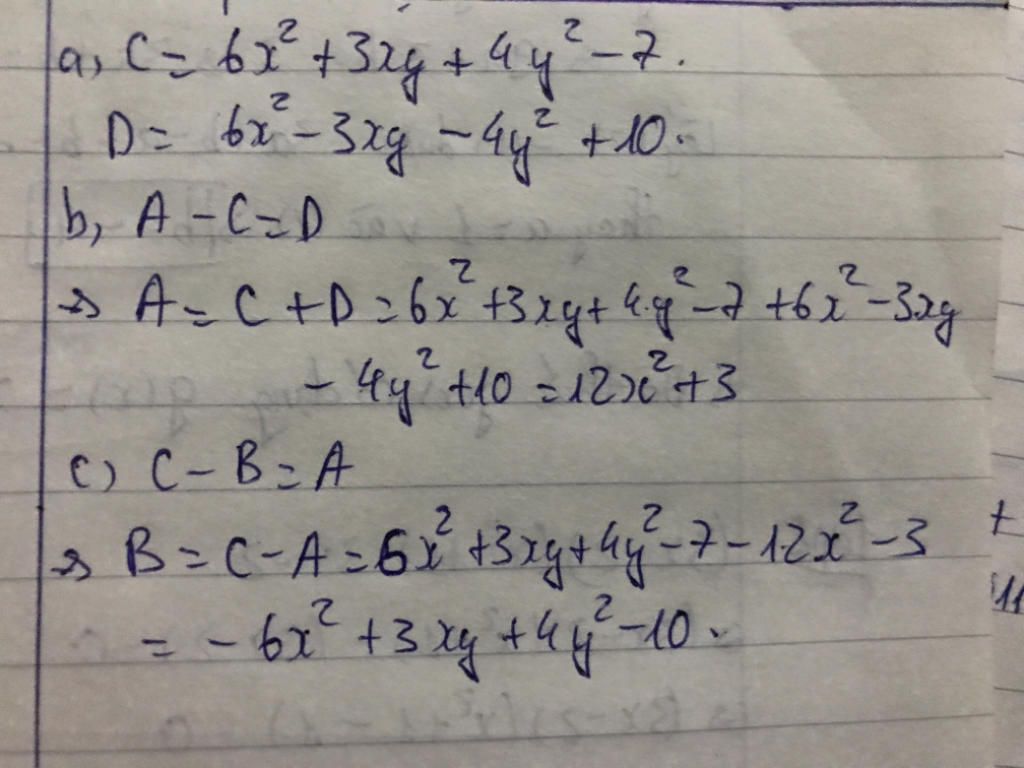 a, C = 6x² + 3xy + 4y² - 7.
D = 6x² - 3xy - 4y² + 10.
b, A - C = D
=> A = C + D = 6x² + 3xy + 4y² - 7 + 6x² - 3xy
- 4y² + 10 = 12x² + 3
c) C - B = A
=> B = C - A = 6x² + 3xy + 4y² - 7 - 12x² - 3
= - 6x² + 3xy + 4y² - 10.